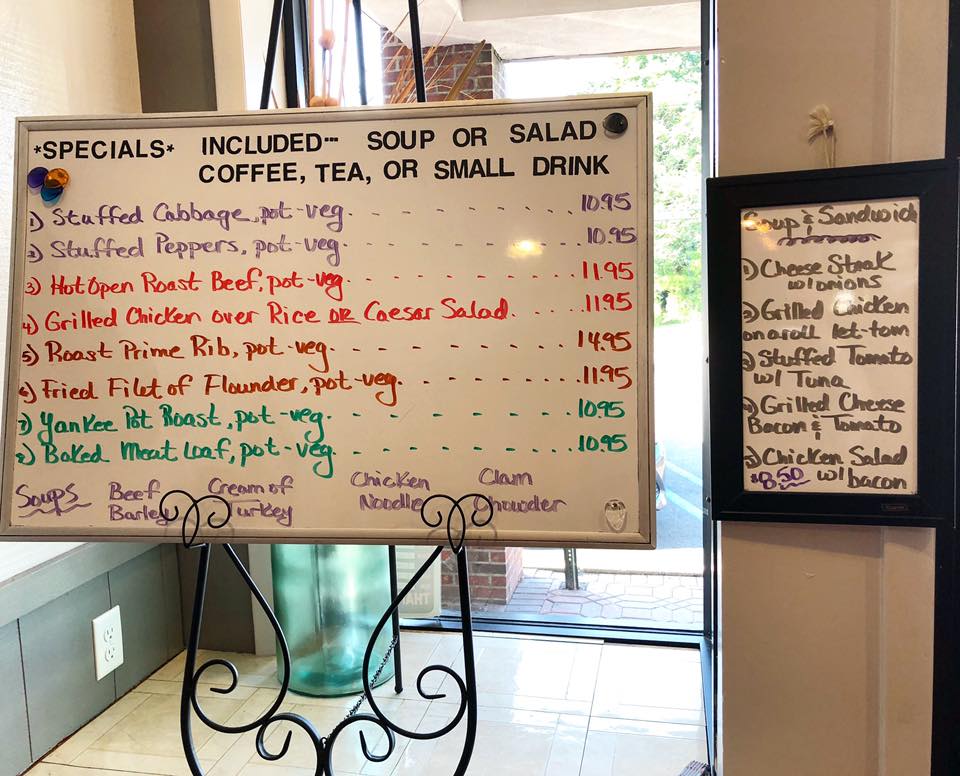 *SPECIALS* INCLUDED--- SOUP OR SALAD
COFFEE, TEA, OR SMALL DRINK
1) Stuffed Cabbage, pot-veg. - - - - - - . . . 10.95
2) Stuffed Peppers, pot-veg. - - - - - - . . . 10.95
3) Hot Open Roast Beef, pot-veg. - - - - - . . . 11.95
4) Grilled Chicken over Rice OR Caesar Salad. . . . . 11.95
5) Roast Prime Rib, pot-veg. - - - - - - . . . 14.95
6) Fried Filet of Flounder, pot-veg. - - - - . . . 11.95
7) Yankee Pot Roast, pot-veg. - - - - - - . . . 10.95
8) Baked Meat Loaf, pot-veg. - - - - - - . . . 10.95
Soups Beef Cream of Chicken Clam
Barley Turkey Noodle Chowder
Soup & Sandwich
1) Cheese Steak
w/ onions
2) Grilled Chicken
on a roll let-tom
3) Stuffed Tomato
w/ Tuna
4) Grilled Cheese
Bacon & Tomato
5) Chicken Salad
$8.50 w/ bacon